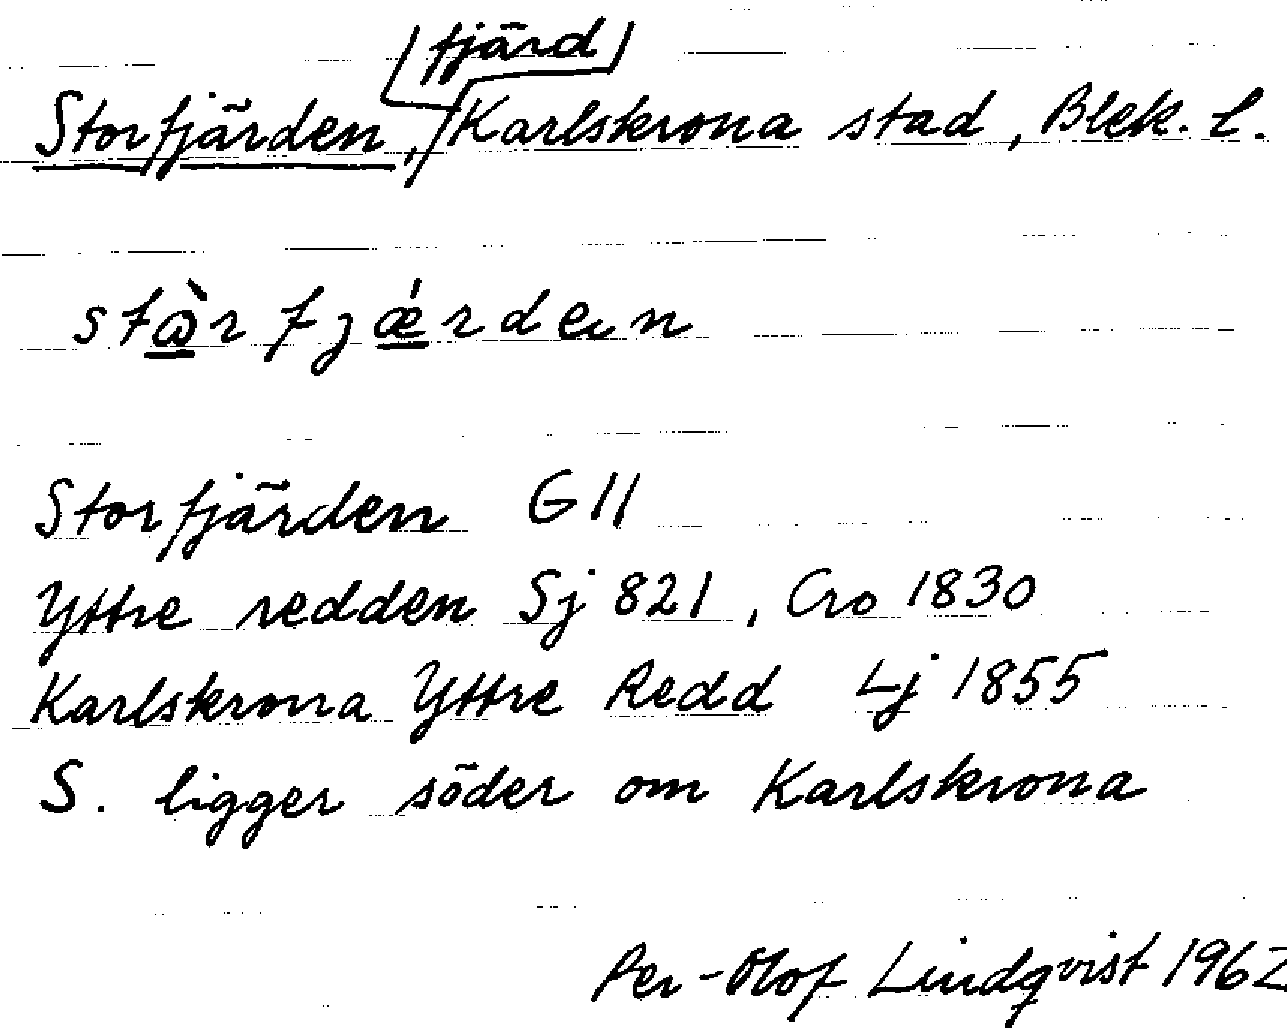 fjärd
Storfjärden, Karlskrona stad, Blek. l.
stårfjærden
Storfjärden G11
Yttre redden Sj 821, Cro 1830
Karlskrona Yttre Redd Lj 1855
S. ligger söder om Karlskrona
Per-Olof Lindqvist 1962